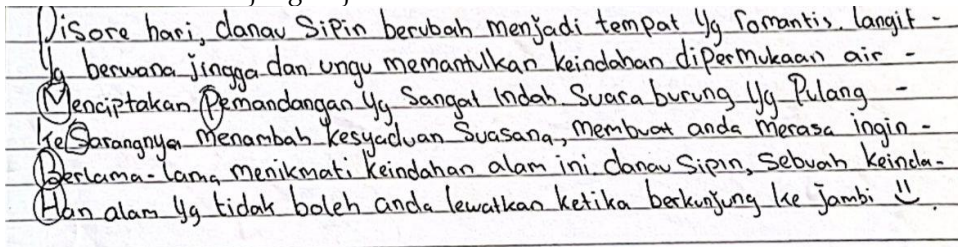 Disore hari, danau Sipin berubah menjadi tempat yg romantis. langit -
yg berwana jingga dan ungu memantulkan keindahan dipermukaan air -
Menciptakan Pemandangan yg Sangat Indah. Suara burung yg Pulang -
ke Sarangnya menambah kesyaduan Suasana, membuat anda merasa ingin -
Berlama-lama menikmati keindahan alam ini. danau Sipin, Sebuah keinda-
Han alam yg tidak boleh anda lewatkan ketika berkunjung ke Jambi.